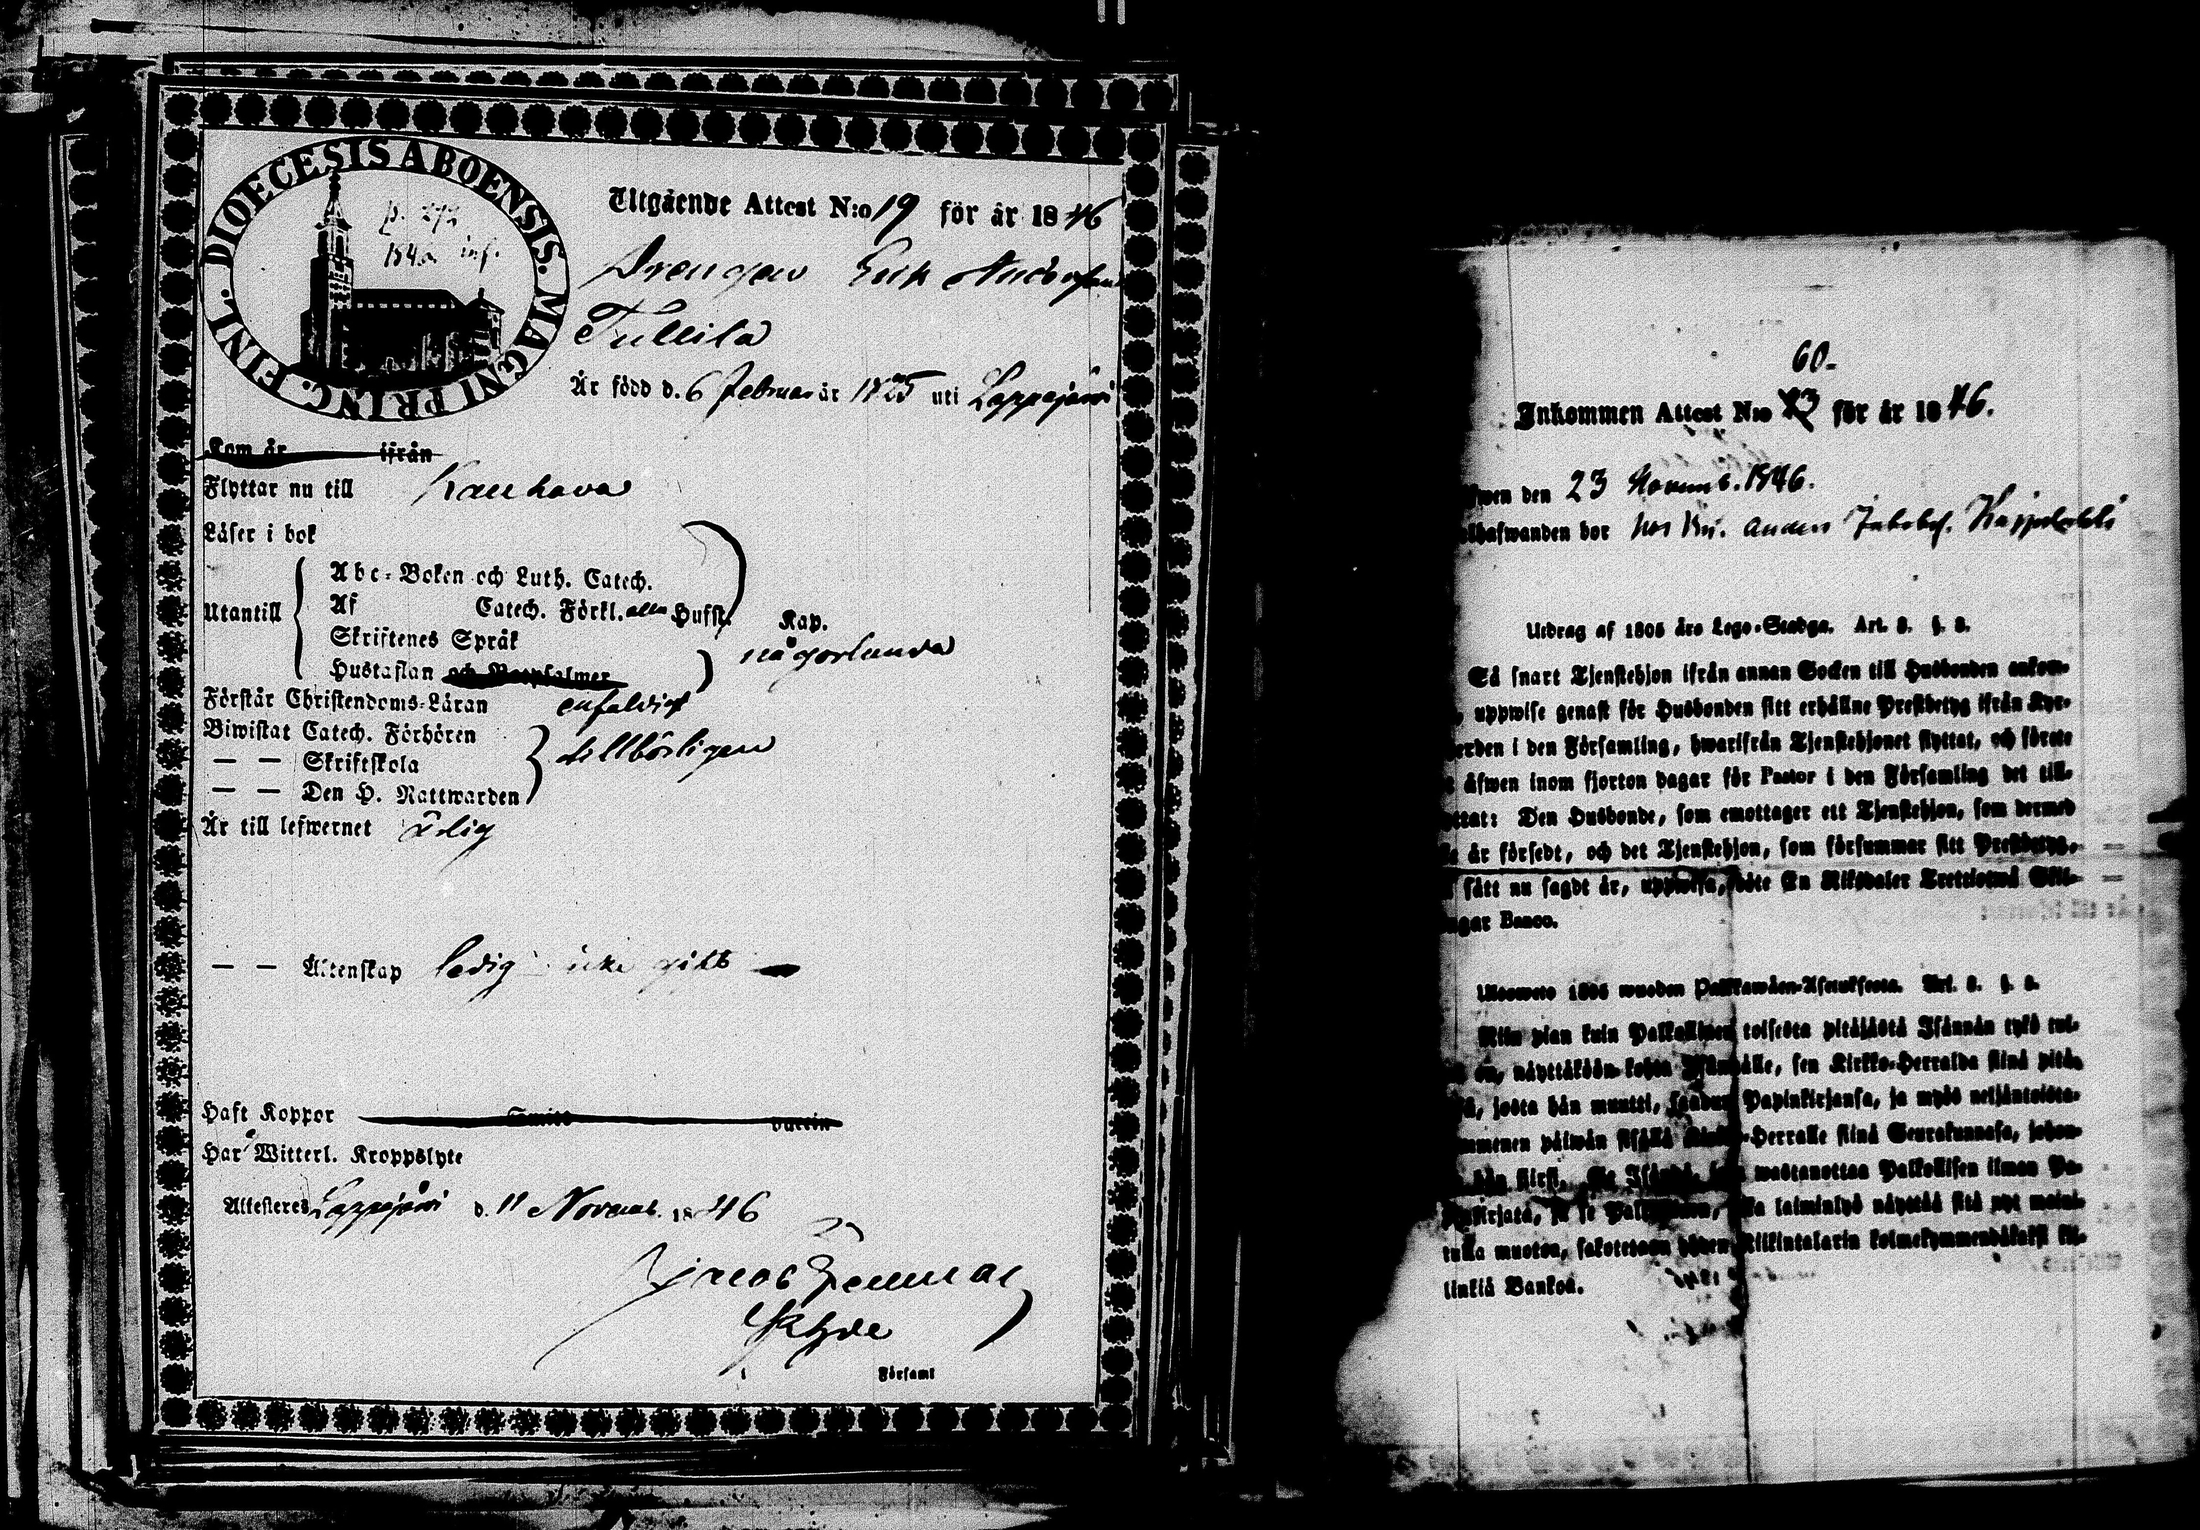 DIOECESIS ABOENSIS. MAGNI PRINC. FINL.
p. 272
1846 inf.
Utgående Attest N:o 19 för år 1846
Drengen Erik Andersson
Tullila
Är född d. 6 Februar är 1825 uti Lappajärvi
Kom år ifrån
Flyttar nu till Kauhava
Läser i bok
Utantill
Abc-Boken och Luth. Catech.
Af Catech. Förkl. alla Hufst. Kap.
Skriftenes Språk
Hustaflan och Botpsalmer
någorlunda
Förstår Christendoms-Läran enfaldigt
Biwistat Catech. Förhören
— — Skriftskola
— — Den H. Nattwarden
tillbörligen
Är till lefwernet ärlig
— — Äktenskap ledig icke gift
Haft Koppor
Har Witterl. Kroppslyte
Attesteras Lappajärvi d. 11 Novemb. 1846
Församl
60.
Inkommen Attest N:o 23 för år 1846.
den 23 Novemb. 1846.
hafwanden bor hos Bn. Anders Jakobs.
Utdrag af 1805 års Lego-Stadga. Art. 3. §. 8.
Så snart Tjenstehjon ifrån annan Socken till Husbonden ankom-
uppwise genast för Husbonden sitt erhållne Prestbetyg ifrån Kyr-
herden i den Församling, hwarifrån Tjenstehjonet flyttat, och förete
äfwen inom fjorton dagar för Pastor i den Församling det till-
flyttat: Den Husbonde, som emottager ett Tjenstehjon, som dermed
är försedt, och det Tjenstehjon, som försummar sitt Prestbetyg,
sått nu sagdt är, uppwisa, böte En Riksdaler Trettiotwå Skil-
ingar Banco.
Ulosweto 1805 wuoden Palkkawäen-Asetuksesta. Art. 3. §. 8.
Niin pian kuin Palkollinen toisesta pitäjästä Isännän tykö tul-
on, näyttäköön kohta Isännälle, sen Kirkko-Herralda siinä pitä-
josta hän muutti, saadun Papinkirjansa, ja myös neljäntoista-
kymmenen päiwän sisällä Kirkko-Herralle siinä Seurakunnasa, johon-
hän siirsi. Se Isändä, joka wastanottaa Palkollisen ilman Pa-
pinkirjatä, ja se Palkollinen, joka laiminlyö näyttää sitä nyt maini-
tulla muoton, sakotetaan yhden Riikintalarin kolmekymmendäkaksi kil-
linkiä Bankoa.